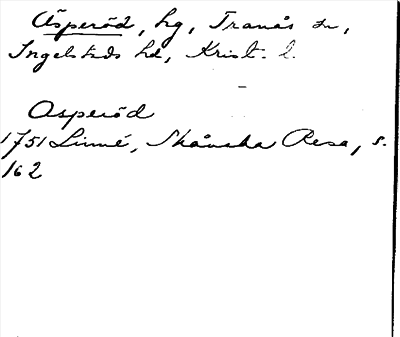 Äsperöd, hg, Tranås sn,
Ingelstads hd, Krist. l.
Asperöd
1751 Linné, Skånska Resa, s.
162